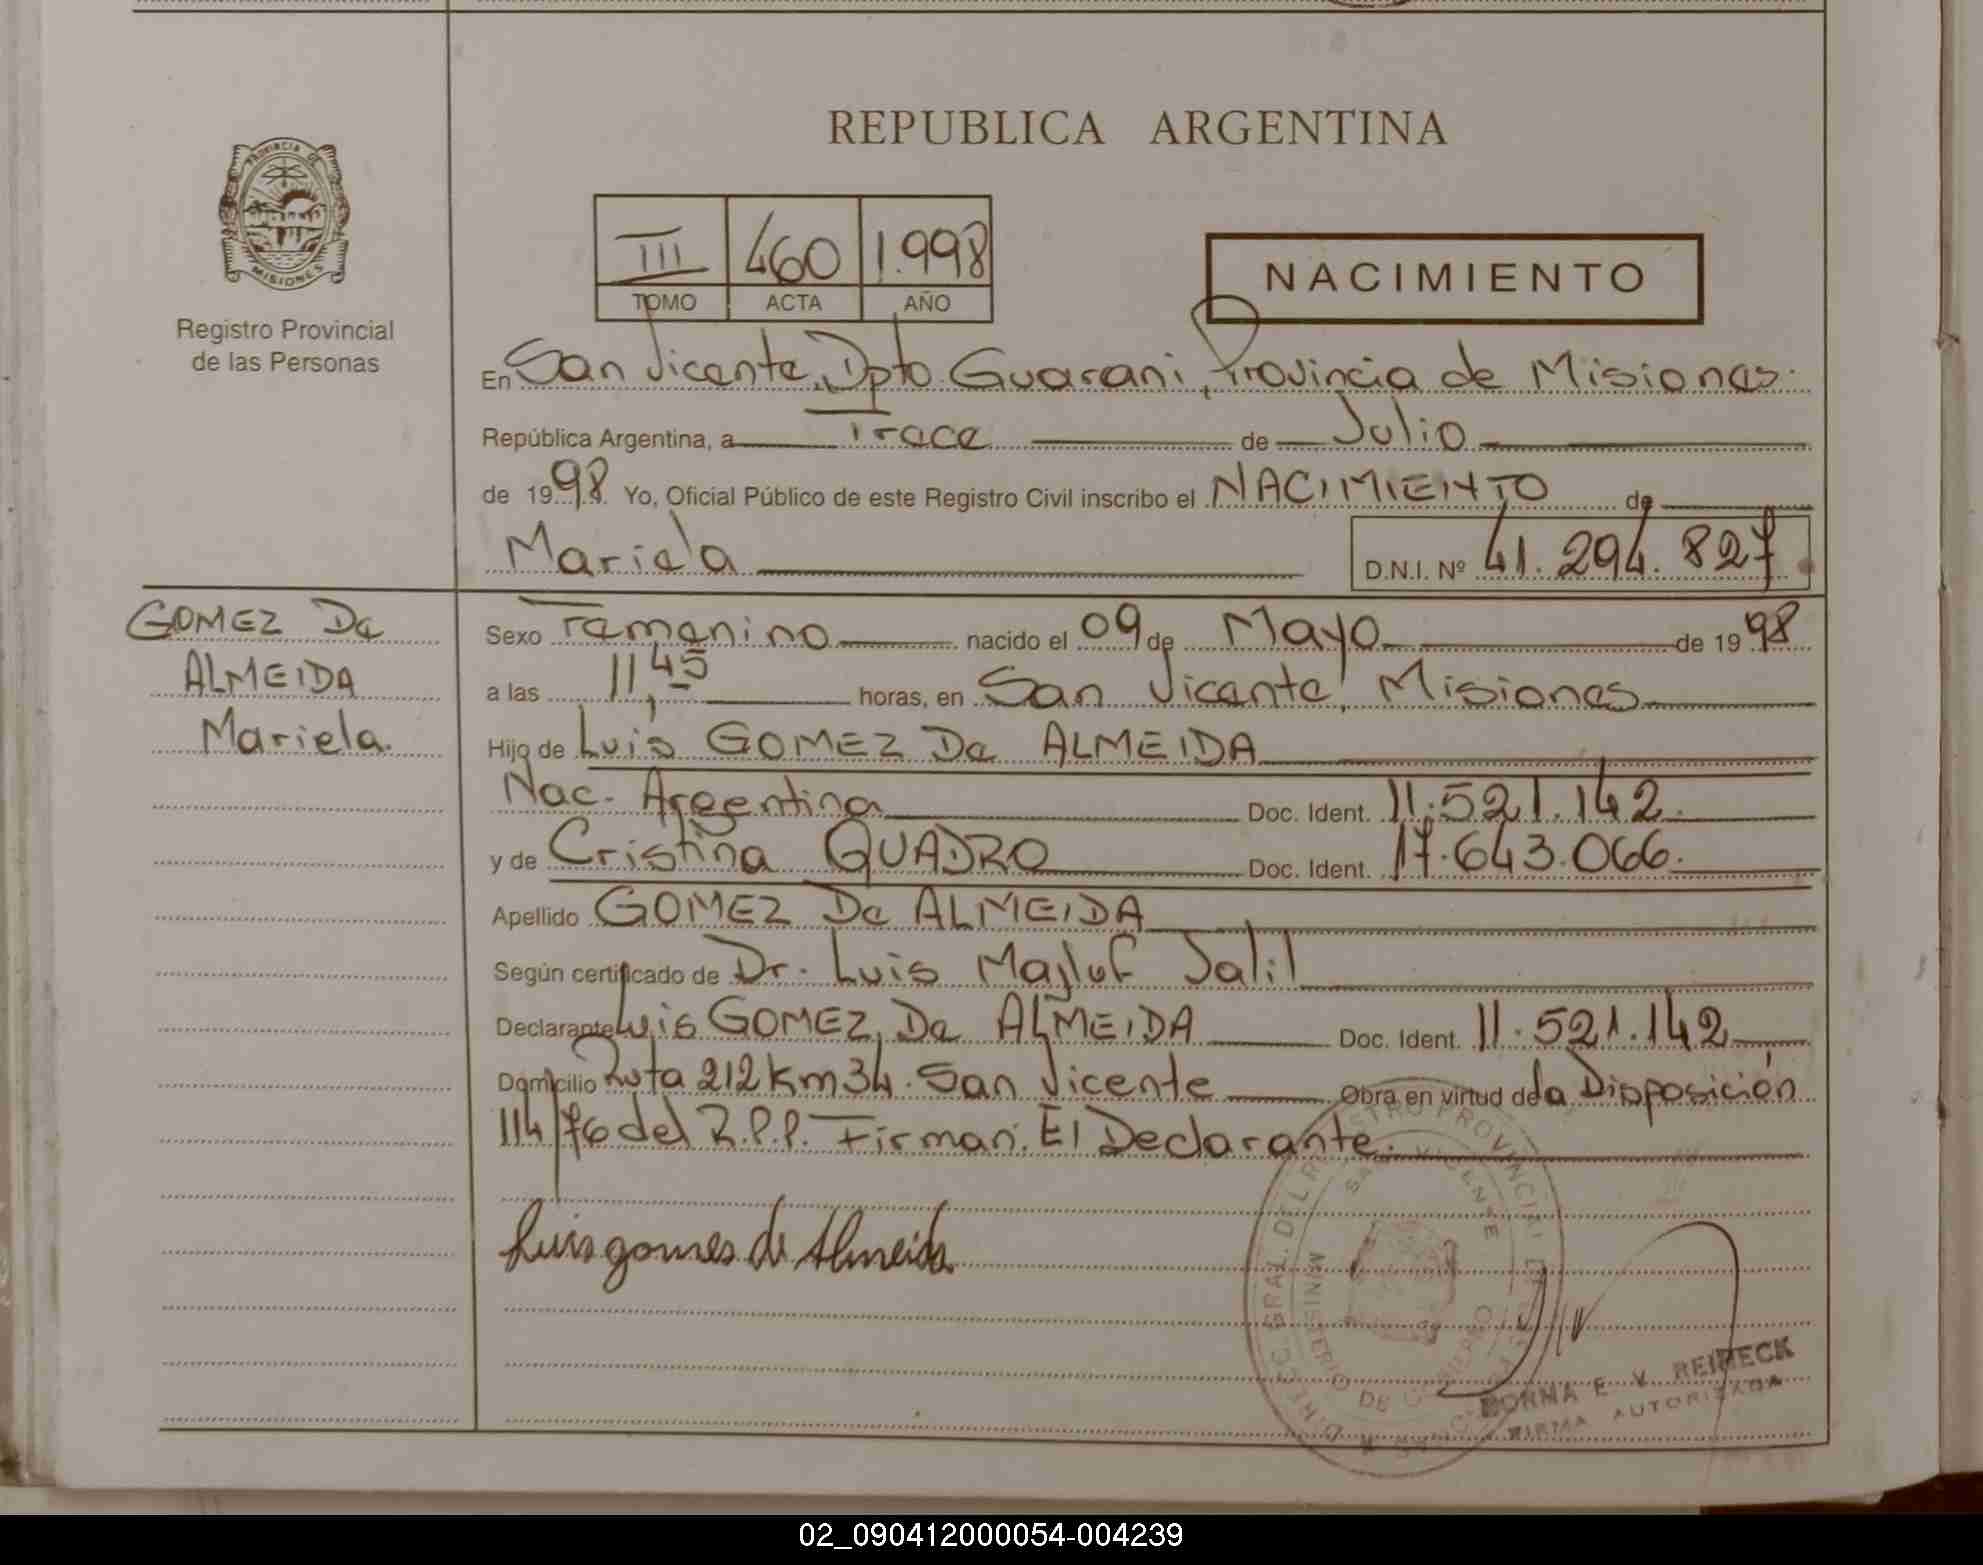 REPUBLICA ARGENTINA
PROVINCIA DE
MISIONES
Registro Provincial
de las Personas
III 460 1.998
TOMO ACTA AÑO
NACIMIENTO
En San Vicente, Dpto. Guarani, Provincia de Misiones.
República Argentina, a Trece de Julio
de 1998. Yo, Oficial Público de este Registro Civil inscribo el NACIMIENTO de
Mariela D.N.I. Nº 41.294.827
GOMEZ De
ALMEIDA
Mariela.
Sexo Femenino nacido el 09 de Mayo de 1998
a las 11,45 horas, en San Vicente, Misiones
Hijo de Luis GOMEZ De ALMEIDA
Nac. Argentina Doc. Ident. 11.521.142.
y de Cristina QUADRO Doc. Ident. 17.643.066.
Apellido GOMEZ De ALMEIDA
Según certificado de Dr. Luis Majluf Jalil
Declarante Luis GOMEZ De ALMEIDA Doc. Ident. 11.521.142
Domicilio Ruta 212 Km 34. San Vicente Obra en virtud de la Disposición
114/76 del R.P.P. Firman: El Declarante.
Luis gomes de Almeida
SAN VICENTE
MINISTERIO DE GOBIERNO
NORMA E. V. REINECK
FIRMA AUTORIZADA
02_090412000054-004239